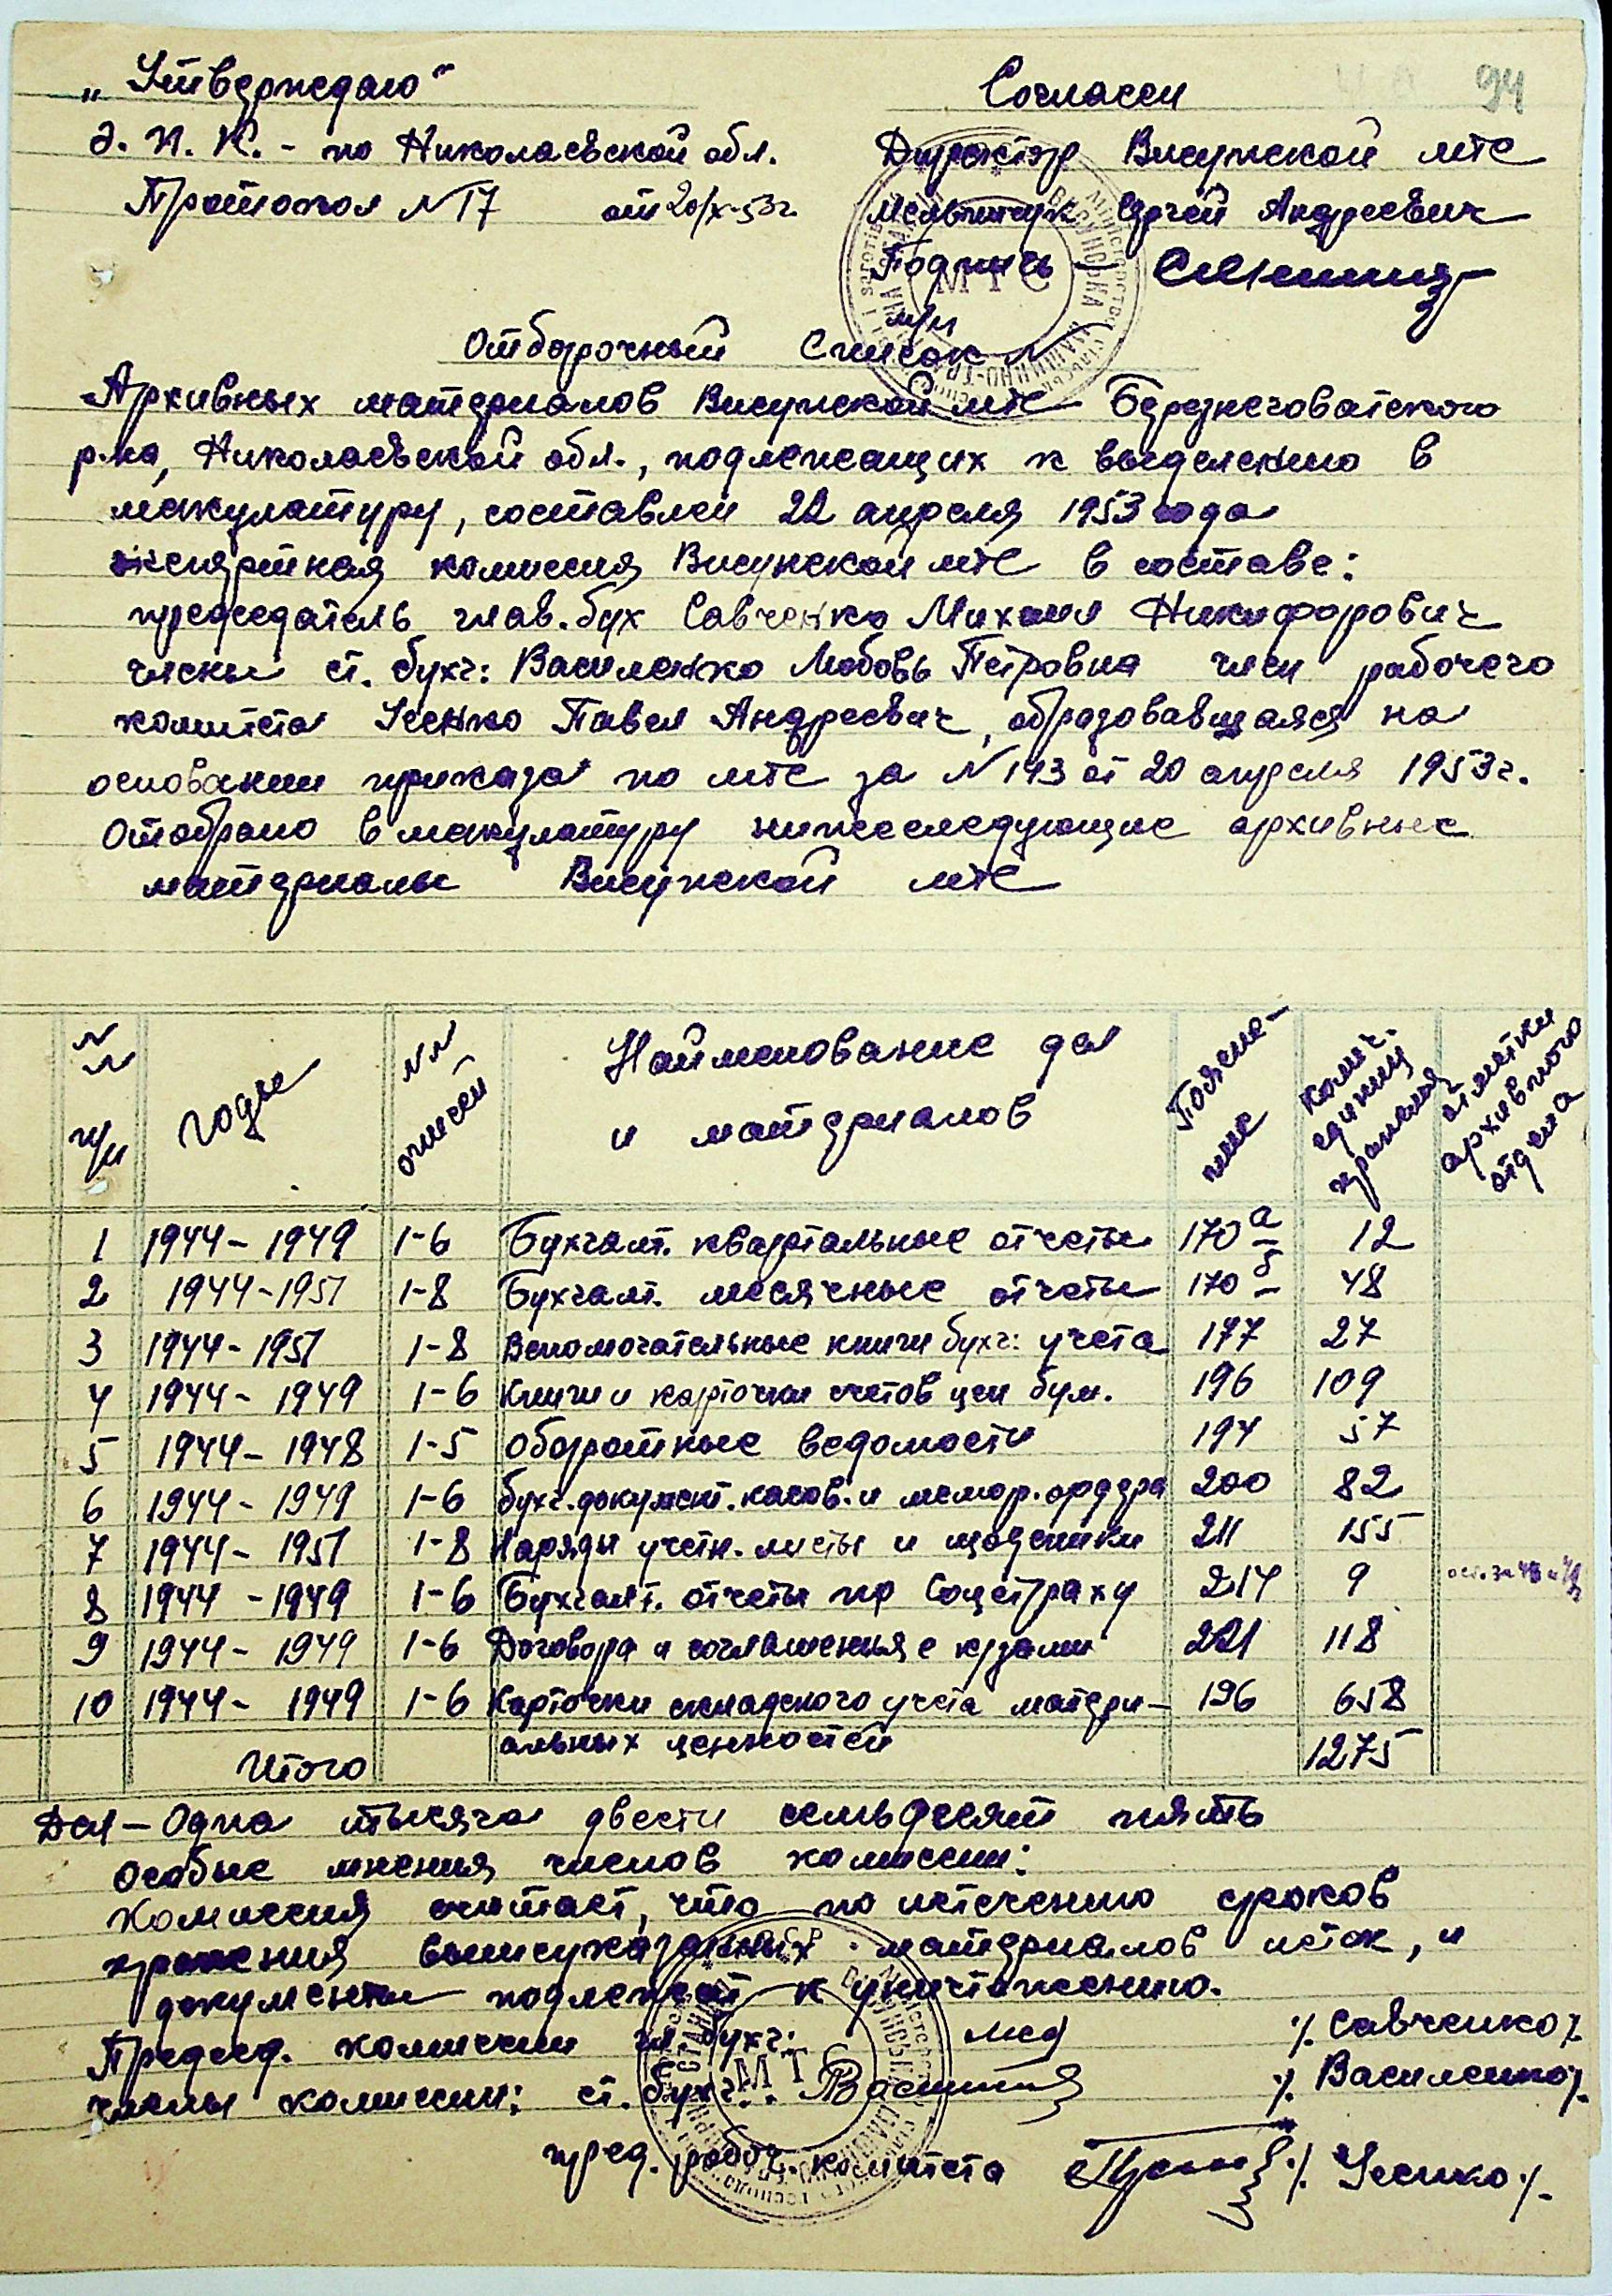 94
„Утверждаю"
Э. П. К. - по Николаевской обл.
Протокол №17 от 20/X-53г.
Согласен
Директор Висунской мтс
Мельничук Сергей Андреевич
Подпись —
м/п
Отборочный Список №
Архивных материалов Висунской мтс Березнеговатского
р-на, Николаевской обл., подлежащих к выделению в
макулатуру, составлен 22 апреля 1953 года
экспертная комиссия Висунской мтс в составе:
председатель глав. бух Савченко Михаил Никифорович
члены ст. бухг: Василенко Любовь Петровна член рабочего
комитета Усенко Павел Андреевич, образовавшаяся на
основании приказа по мтс за №143 от 20 апреля 1953г.
Отобрано в макулатуру нижеследующие архивные
материалы Висунской мтс
№№ п/п годы №№ описей Наименование дел и материалов Поясне-ние Колич. единиц хранения отметки архивного отдела
1 1944 - 1949 1-6 Бухгалт. квартальные отчеты 170 а 12
2 1944-1951 1-8 Бухгалт. месячные отчеты 170 б 48
3 1944-1951 1-8 Вспомогательные книги бухг: учета 177 27
4 1944 - 1949 1-6 Книги и карточки счетов цен бум. 196 109
5 1944 - 1948 1-5 Оборотные ведомости 194 57
6 1944 - 1949 1-6 бухг. документ. касов. и мемор. ордера 200 82
7 1944 - 1951 1-8 Наряды учетн. листы и табеля 211 155
8 1944 - 1949 1-6 Бухгалт. отчеты по Соцстраху 214 9
9 1944 - 1949 1-6 Договора и соглашения с к/зами 221 118
10 1944 - 1949 1-6 Карточки складского учета матери-
альных ценностей 196 658
Итого 1275
Дел — Одна тысяча двести семьдесят пять
Особые мнения членов комиссии:
Комиссия считает, что по истечению сроков
хранения вышеуказанных материалов истек, и
документы подлежат к уничтожению.
Председ. комиссии гл. бухг: /. Савченко /.
члены комиссии: ст. бухг: /. Василенко /.
пред. рабоч. комитета /. Усенко /.
МТС
МТС